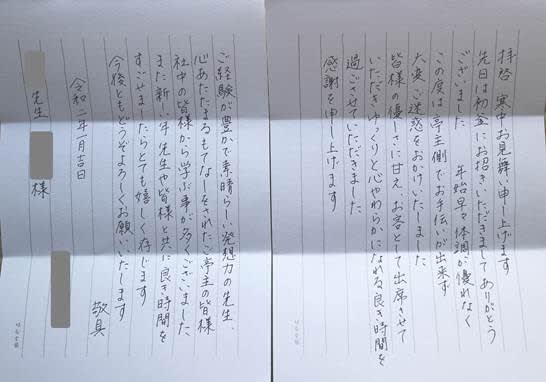 拝啓 寒中お見舞い申し上げます
先日は初釜にお招きいただきましてありがとう
ございました 年始早々体調が優れなく
この度は亭主側でお手伝いが出来ず
大変ご迷惑をおかけいたしました
皆様の優しさに甘え、お客として出席させて
いただきゆっくりと心やわらかになれる良き時間を
過ごさせていただきました
感謝を申し上げます
ご経験が豊かで素晴らしい発想力の先生、
心あたたまるもてなしをされたご亭主の皆様
社中の皆様から学ぶ事が多くございました
また新しい年先生や皆様と共に良き時間を
すごせましたらとても嬉しく存じます
今後ともどうぞよろしくお願いいたします
敬具
令和二年一月吉日
先生
様